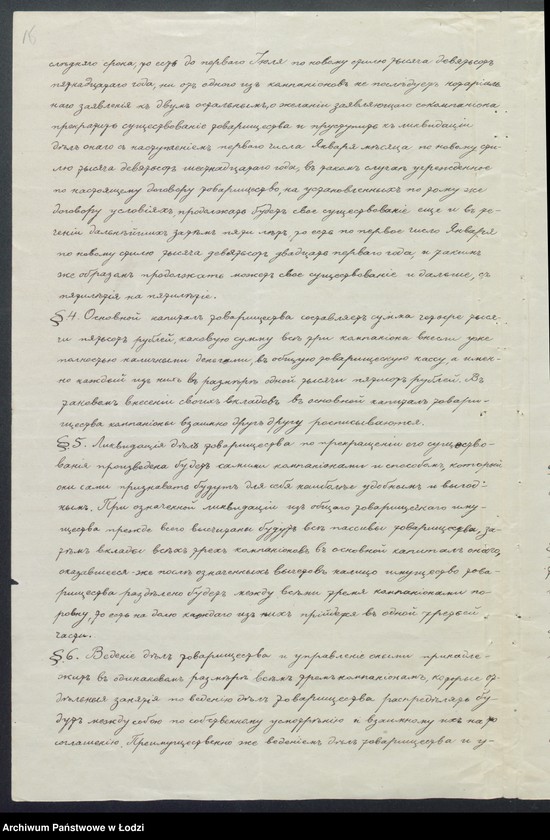 16
слѣдняго срока, то есть до перваго Іюля по новому стилю тысяча девятьсотъ
пятнадцатаго года, ни отъ одного изъ компаніоновъ не послѣдуетъ нотаріаль-
наго заявленія къ двумъ остальнымъ, о желаніи заявляющаго сокомпаніона
прекратить существованіе товарищества и приступить къ ликвидаціи
дѣлъ онаго съ наступленіемъ перваго числа Января мѣсяца по новому сти-
лю тысяча девятьсотъ шестнадцатаго года, въ такомъ случаѣ учрежденное
по настоящему договору товарищество, на установленныхъ по тому же
договору условіяхъ, продолжать будетъ свое существованіе еще и въ те-
ченіи дальнѣйшихъ затѣмъ пяти лѣтъ, то есть по первое число Января
по новому стилю тысяча девятьсотъ двадцать перваго года, и такимъ
же образомъ продолжать можетъ свое существованіе и дальше, съ
пятилѣтія на пятилѣтіе.
§ 4. Основной капиталъ товарищества составляетъ сумма четыре тыся-
чи пятьсотъ рублей, каковую сумму всѣ три компаніона внесли уже
полностью наличными деньгами, въ общую товарищескую кассу, а имен-
но каждый изъ нихъ въ размѣрѣ одной тысячи пятисотъ рублей. Въ
таковомъ внесеніи своихъ вкладовъ въ основной капиталъ товари-
щества компаніоны взаимно другъ другу росписываются.
§ 5. Ликвидація дѣлъ товарищества по прекращеніи его существо-
ванія произведена будетъ самими компаніонами и способомъ, который
они сами признавать будутъ для себя наиболѣе удобнымъ и выгод-
нымъ. При означенной ликвидаціи изъ общаго товарищескаго иму-
щества прежде всего высчитаны будутъ всѣ пассивы товарищества, за-
тѣмъ вклады всѣхъ трехъ компаніоновъ въ основной капиталъ онаго,
оказавшееся-же послѣ означенныхъ вычетовъ налицо имущество това-
рищества раздѣлено будетъ между всѣми тремя компаніонами по-
ровну, то есть на долю каждаго изъ нихъ прійдется въ одной третьей
части.
§ 6. Веденіе дѣлъ товарищества и управленіе оными принадле-
житъ въ одинаковомъ размѣрѣ всѣмъ тремъ компаніонамъ, которые от-
дѣльныя занятія по веденію дѣлъ товарищества распредѣлять бу-
дутъ между собою по собственному усмотрѣнію и взаимному ихъ на то
соглашенію. Преимущественно же веденіемъ дѣлъ товарищества и у-
Archiwum Państwowe w Łodzi